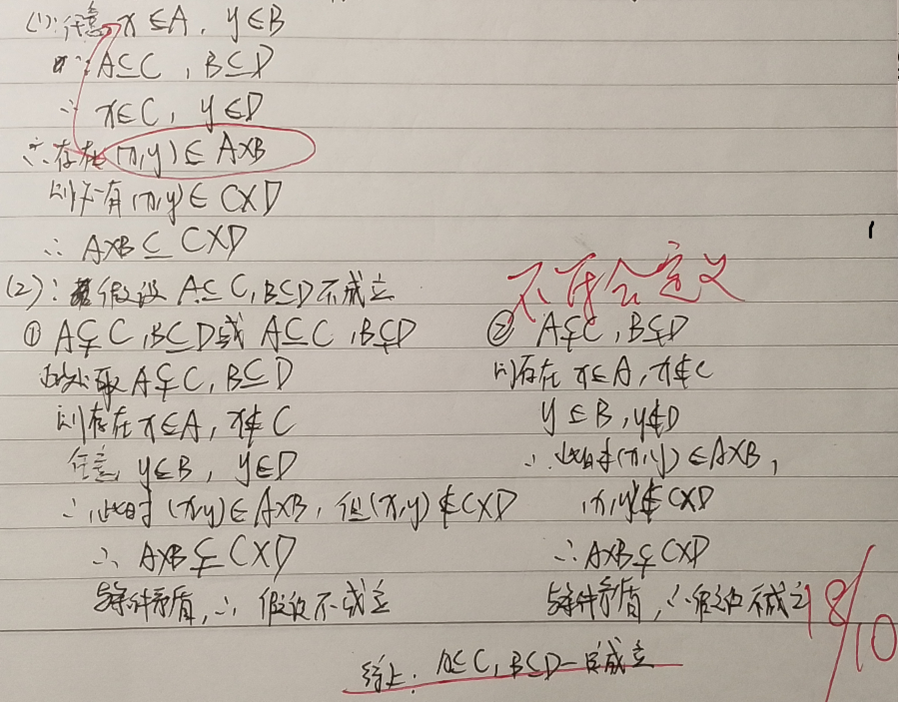 (1):任意 x∈A, y∈B
∵ A⊆C , B⊆D
∴ x∈C, y∈D
∴存在(x,y)∈A×B
则必有(x,y)∈C×D
∴ A×B⊆C×D
(2):假设 A⊆C,B⊆D不成立
不符合定义
① A⊈C,B⊆D或 A⊆C,B⊈D
此处取A⊈C,B⊆D
则存在x∈A, x∉C
任意 y∈B, y∈D
∴此时(x,y)∈A×B,但(x,y)∉C×D
∴ A×B⊈C×D
与条件矛盾,∴假设不成立
② A⊈C,B⊈D
则存在x∈A,x∉C
y∈B,y∉D
∴此时(x,y)∈A×B,
(x,y)∉C×D
∴A×B⊈C×D
与条件矛盾,∴假设不成立
综上: A⊆C,B⊆D一定成立
18/10